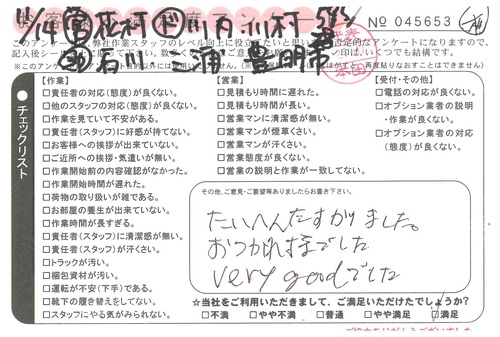 11/14
No 045653
このアンケートは弊社作業スタッフのレベル向上に役立てたいと思い
否定的なアンケートになりますので、
チェックリスト
【作業】
□責任者の対応(態度)が良くない。
□他のスタッフの対応(態度)が良くない。
□作業を見ていて不安がある。
□責任者(スタッフ)に好感が持てない。
□お客様への挨拶が出来ていない。
□ご近所への挨拶・気遣いが無い。
□作業開始前の内容確認がなかった。
□作業開始時間が遅れた。
□荷物の取り扱いが雑である。
□お部屋の養生が出来ていない。
□作業時間が長すぎる。
□責任者(スタッフ)に清潔感が無い。
□責任者(スタッフ)が汗くさい。
□トラックが汚い。
□梱包資材が汚い。
□運転が不安(下手)である。
□靴下の履き替えをしてない。
□スタッフにやる気がみられない。
【営業】
□見積もり時間に遅れた。
□見積もり時間が長い。
□営業マンに清潔感が無い。
□営業マンが煙草くさい。
□営業マンが汗くさい。
□営業態度が良くない。
□営業の説明と作業が一致してない。
【受付・その他】
□電話の対応が良くない。
□オプション業者の説明
・作業が良くない。
□オプション業者の対応
(態度)が良くない。
その他、ご意見・ご要望等ありましたらお書き下さい。
たいへんたすかりました。
おつかれ様でした
very goodでした
☆当社をご利用いただきまして、ご満足いただけたでしょうか?
□不満 □やや不満 □普通 □やや満足 □満足